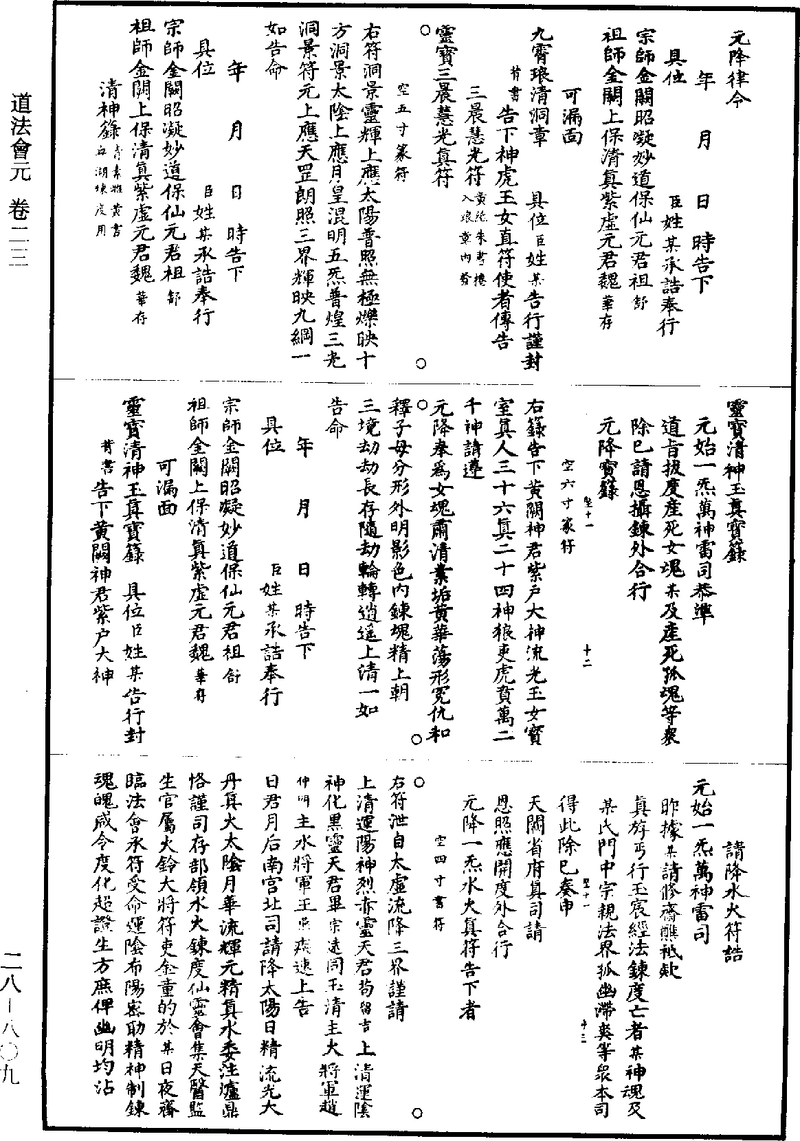 道法會元 卷二三
二八—八〇九
元降律令
年 月 日 時告下
具位 臣姓某承誥奉行
宗師金闕昭凝妙道保仙元君祖舒
祖師金闕上保清真紫虛元君魏華存
可漏面
九霄琅清洞章 具位臣姓某告行謹封
背書告下神虎玉女直符使者傳告
三晨慧光符黃紙朱書捲入琅章內發
靈寶三晨慧光真符
空五寸篆符
右符洞景靈輝上應太陽普照無極爍映十
方洞景太陰上應月皇混明五炁普煌三光
洞景符元上應天罡朗照三界輝映九綱一
如告命
年 月 日 時告下
具位 臣姓某承誥奉行
宗師金闕昭凝妙道保仙元君祖舒
祖師金闕上保清真紫虛元君魏華存
清神籙青素雅黃書血湖煉度用
靈寶清神玉真寶籙
元始一炁萬神雷司恭準
道旨拔度產死女魂某及產死孤魂等衆
除已請恩攝鍊外合行
元降寶籙
空六寸篆符
右籙告下黃闕神君紫户大神流光玉女寶
室真人三十六真二十四神狼吏虎賁萬二
千神請遵
元降奉爲女魂肅清業垢黄華蕩形冤仇和
釋子母分形外明影色內鍊魂精上朝
三境劫劫長存隨劫輪轉逍遥上清一如
告命
年 月 日 時告下
具位 臣姓某承誥奉行
宗師金闕昭凝妙道保仙元君祖舒
祖師金闕上保清真紫虛元君魏華存
可漏面
靈寶清神玉真寶籙 具位臣姓某告行封
背書告下黃闕神君紫户大神
請降水火符誥
元始一炁萬神雷司
昨據某請修齋醮祇欵
真馭丐行玉宸經法鍊度亡者某神魂及
某氏門中宗親法界孤幽滯爽等衆本司
得此除已奏申
天闕省府真司請
恩照應開度外合行
元降一炁水火真符告下者
空四寸書符
右符泄自太虛流降三界謹請
上清運陽神烈赤靈天君苟留吉上清運陰
神化黑靈天君畢宗遠同玉清主火將軍趙
仲明主水將軍王 疾速上告
日君月后南宫北司請降太陽日精流光火
丹真火太陰月華流輝元精真水委注爐鼎
恪謹司存部領水火鍊度仙靈會集天醫監
生官屬火鈴大將符吏金童的於某日夜齋
臨法會承符受命運陰布陽密助精神制鍊
魂魄咸令度化超證生方庶俾幽明均沾